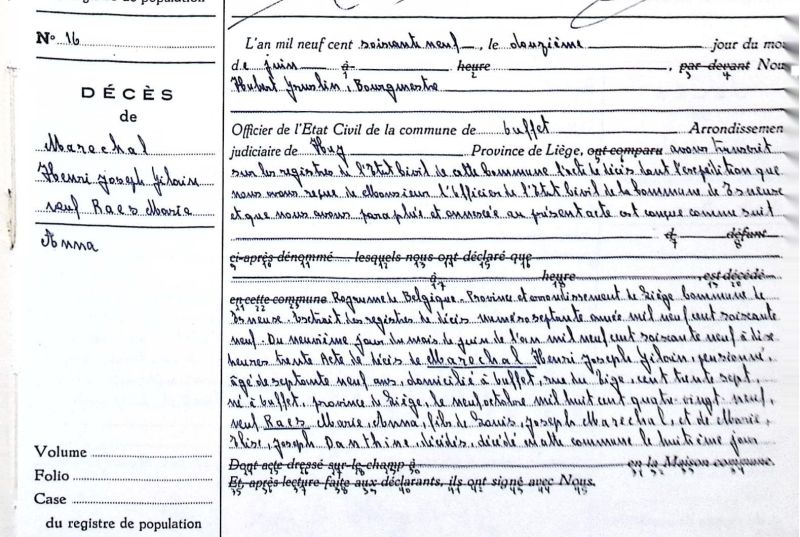 Nº 16
DÉCÈS
de
Marechal
Henri Joseph Gilain
veuf Raes Marie
Anna
Volume
Folio
Case
du registre de population
L'an mil neuf cent soixante neuf, le douzième jour du mo
de juin à heure, par devant Nou
Hubert, Bourgmestre
Officier de l'Etat Civil de la commune de Buffet Arrondissemen
judiciaire de Huy Province de Liège, ont comparu avons transcrit
sur les registres de l'Etat Civil de cette Commune l'acte de décès dont l'expédition que
nous avons reçue de Monsieur l'Officier de l'Etat Civil de la Commune de Esneux
et que nous avons paraphée et annexée au présent acte est conçue comme suit
et défunt
ci-après dénommé lesquels nous ont déclaré que
à heure, est décédé
en cette commune Royaume de Belgique. Province et arrondissement de Liège Commune de
Esneux. Extrait des registres de décès numéro septante année mil neuf cent soixante
neuf. Du neuvième jour du mois de juin de l'an mil neuf cent soixante neuf à dix
heures trente Acte de décès de Marechal Henri Joseph Gilain, pensionné,
âgé de septante neuf ans, domicilié à Buffet, rue du Bige, cent trente sept,
né à Buffet, province de Liège, le neuf octobre mil huit cent quatre vingt neuf,
veuf Raes Marie, Anna, fils de Louis, Joseph Marechal, et de Marie,
Elise, Joseph Danthine, décédés, décédé en cette commune le huitième jour
Dont acte dressé sur le champ à en la Maison commune.
Et après lecture faite aux déclarants, ils ont signé avec Nous.